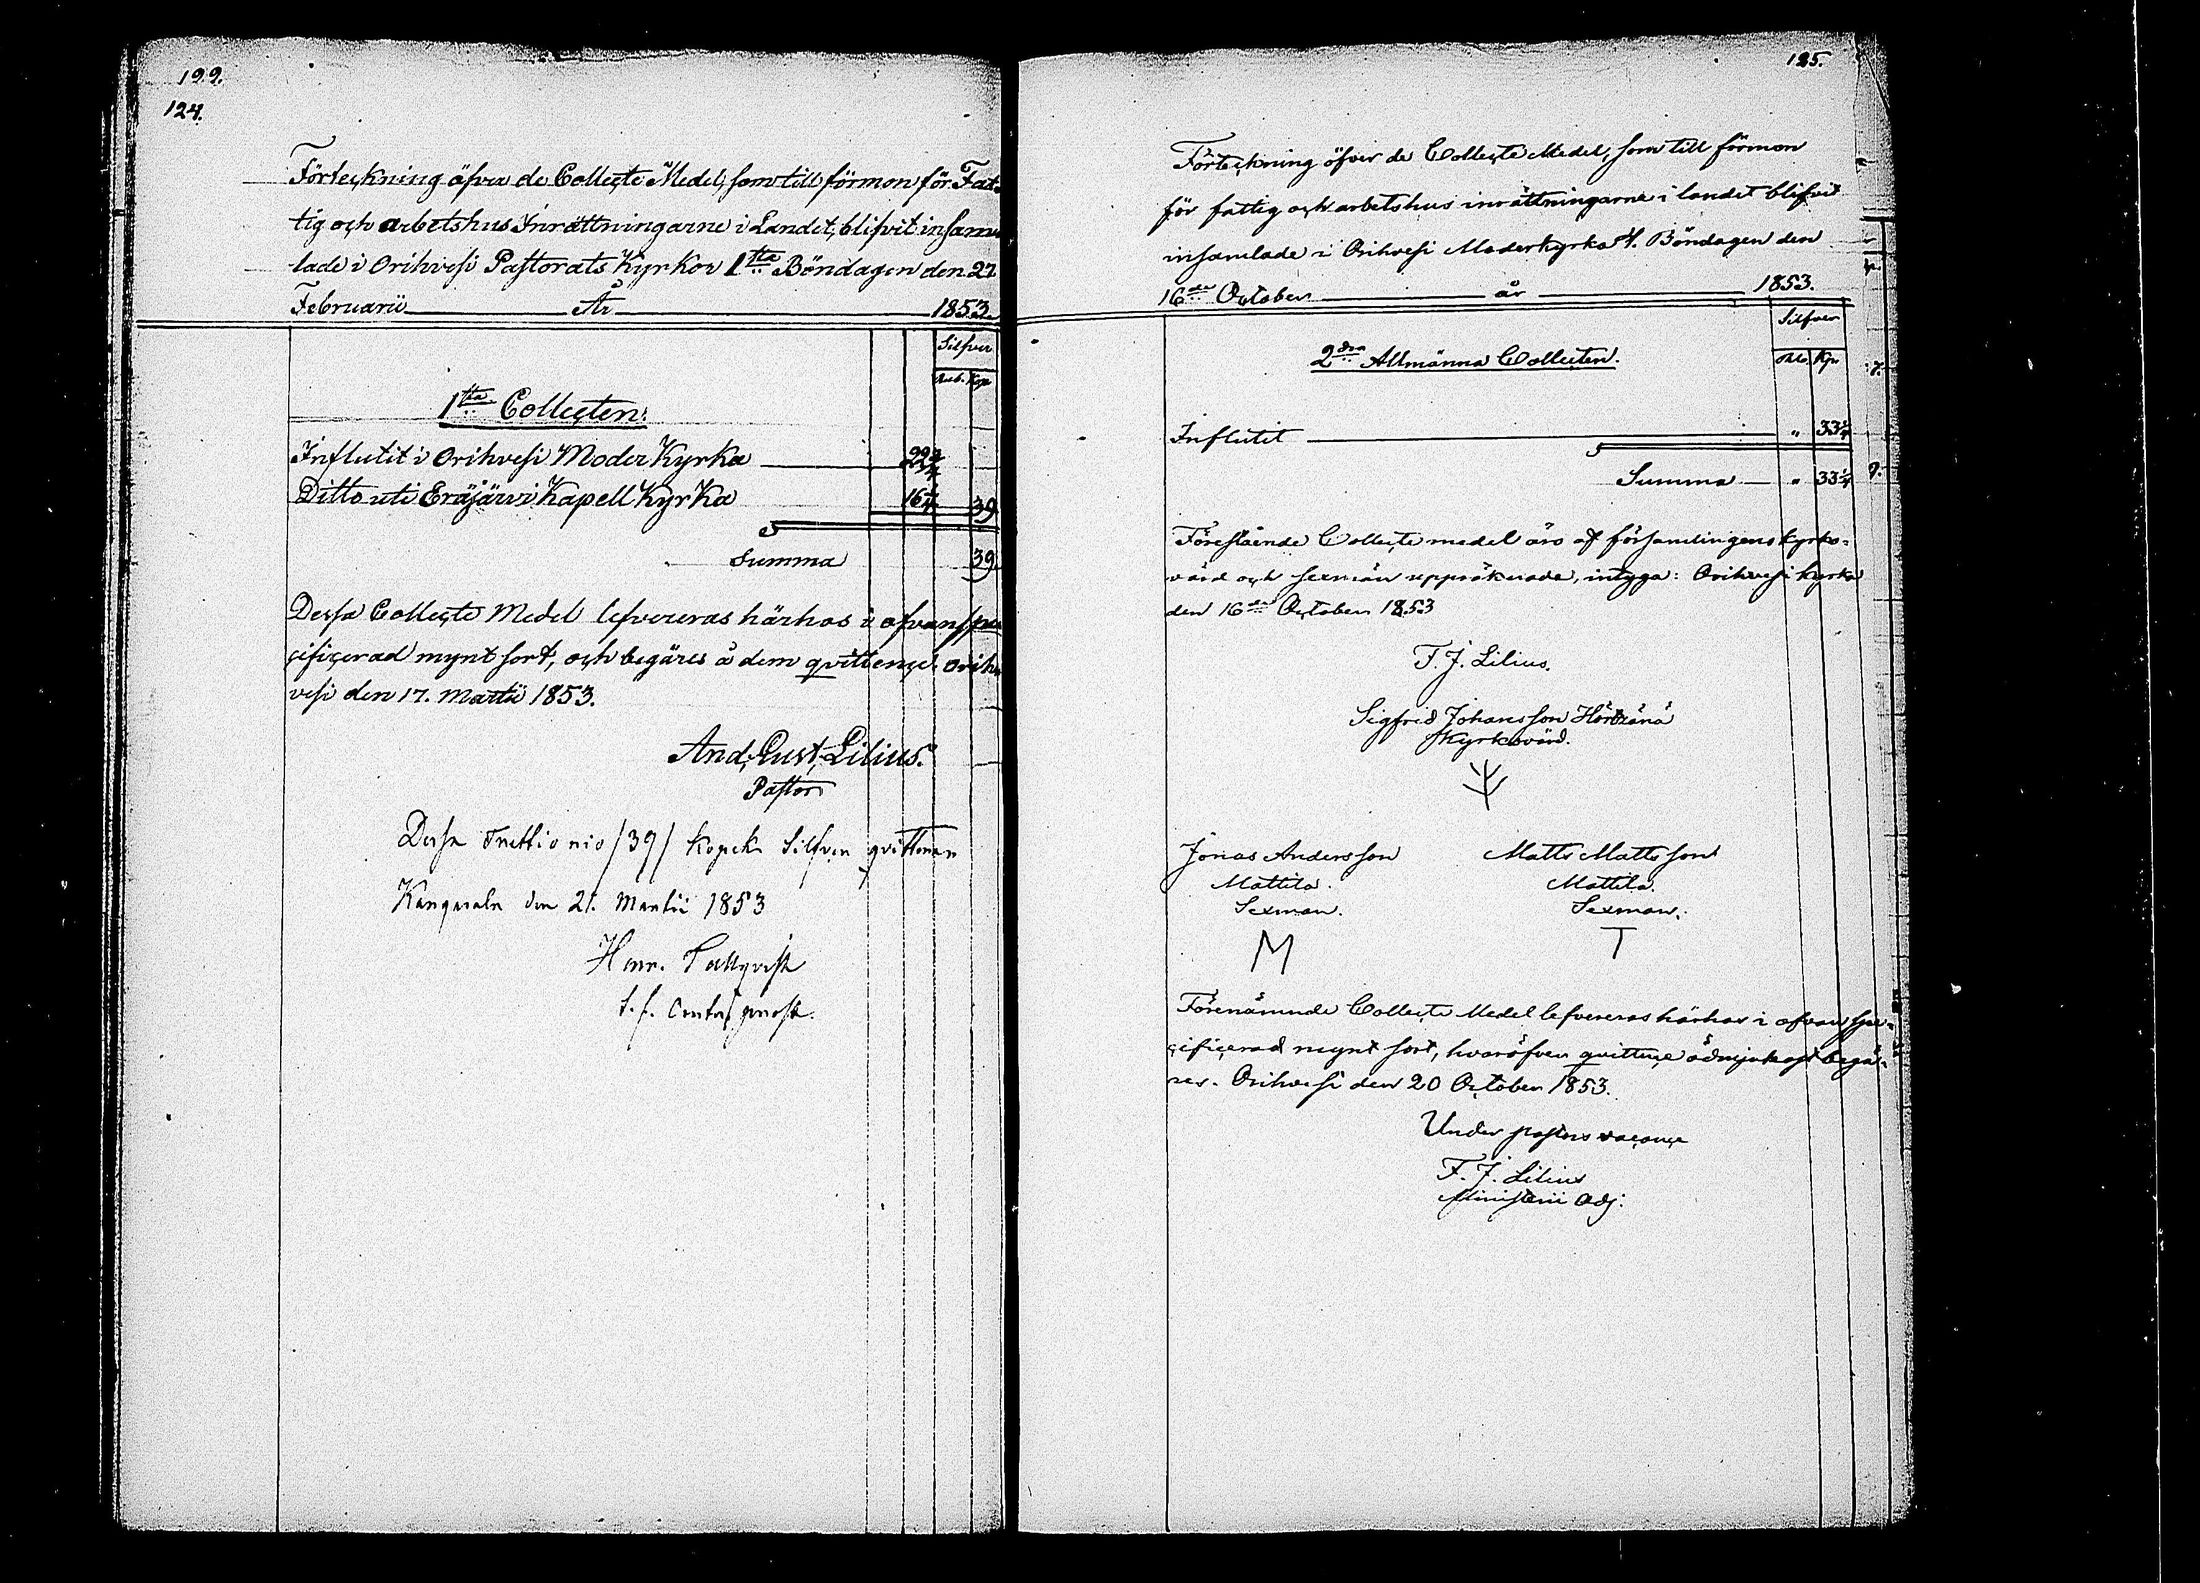 199.
124.
Förteckning öfver de Collecte Medel, som till förmon för Fat-
tig och arbetshus Inrättningarne i Landet, blifvit insam-
lade i Orihvesi Pastorats Kyrkor 1sta Böndagen den 27
Februarii År 1853.
Silfver
Rub. Kop.
1sta Collecten.
Influtit i Orihvesi Moder Kyrka 22 3/4
Ditto uti Eräjärvi Kapell Kyrka 16 1/4 39
Summa 39
Dessa Collecte Medel lefvereras härhos i ofvanspe-
cificerad mynt sort, och begäres å dem qvittence. Orih-
vesi den 17. Martii 1853.
And. Gust. Lilius.
Pastor
Dessa Trettio nio /39/ Kopek Silfver qvitteras
Kangasala den 21. Martii 1853
Henr. Tallqvist
t.f. Contr. prost.
125.
Förteckning öfver de Collecte Medel, som till förmon
för fattig och arbetshus inrättningarne i landet blifvit
insamlade i Orihvesi Moderkyrka 4. Böndagen den
16de October år 1853.
Silfver
Rbl. Kp.
2dra Allmänna Collecten.
Influtit " 33 1/4
Summa " 33 1/4
Förestående Collecte medel äro af församlingens kyrko-
värd och sexmän uppräknade, intyga: Orihvesi kyrka
den 16de October 1853
F. J. Lilius.
Sigfrid Johansson
Kyrkovärd.
Jonas Andersson Matts Mattsson
Mattila. Mattila.
Sexman. Sexman.
M T
Förenämnde Collecte Medel lefvereras härhos i ofvanspe-
cificerad mynt sort, hvaröfver qvittence ödmjukast begä-
res. Orihvesi den 20 October 1853.
Under pastors vacance
F. J. Lilius
Ministerii Adj.